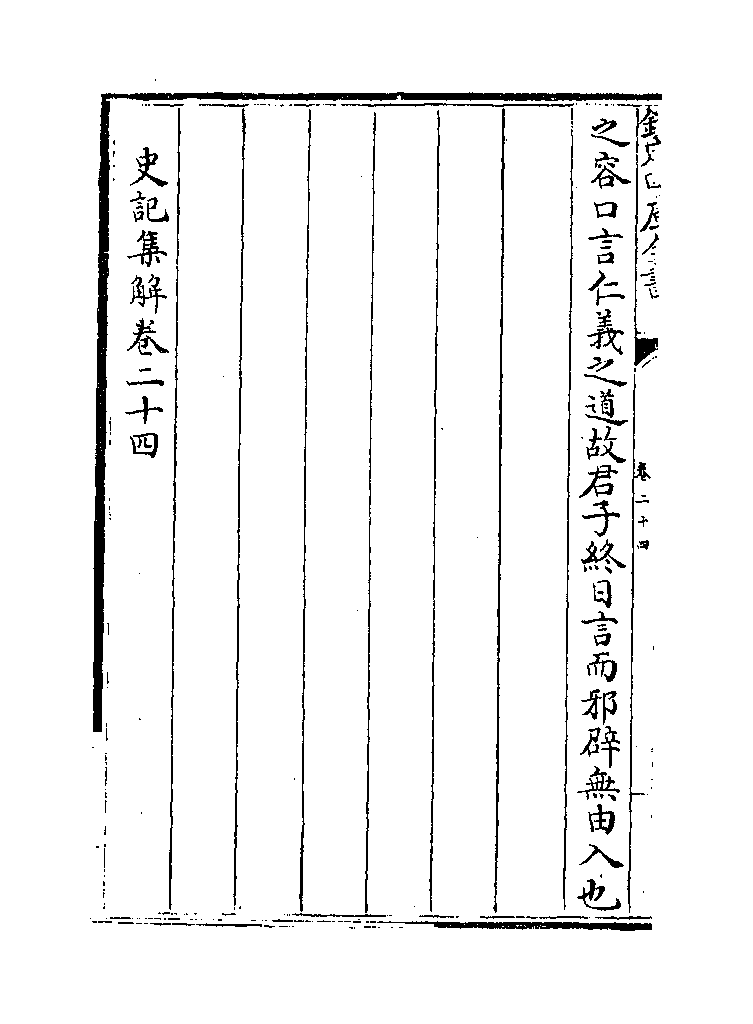 欽定四庫全書
卷二十四
之容口言仁義之道故君子終日言而邪辟無由入也
史記集解卷二十四